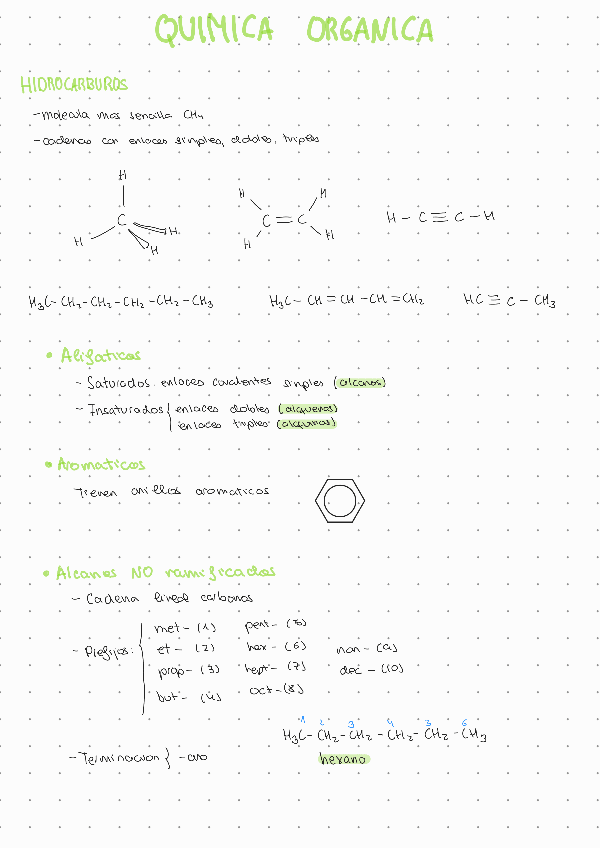 QUIMICA ORGANICA
HIDROCARBUROS
- molecula mas sencilla CH₄
- cadenas con enlaces simples, dobles, triples
H
C
H
H
H
H
H
C = C
H
H
H - C ≡ C - H
H₃C - CH₂ - CH₂ - CH₂ - CH₂ - CH₃
H₃C - CH = CH - CH = CH₂
HC ≡ C - CH₃
• Alifaticos
- Saturados: enlaces covalentes simples (alcanos)
- Insaturados { enlaces dobles (alquenos)
enlaces triples (alquinos)
• Aromaticos
Tienen anillos aromaticos
• Alcanos NO ramificados
- Cadena lineal carbonos
- Prefijos: {
met- (1)
et- (2)
prop- (3)
but- (4)
pent- (5)
hex- (6)
hept- (7)
oct- (8)
non- (9)
dec- (10)
1 2 3 4 5 6
H₃C - CH₂ - CH₂ - CH₂ - CH₂ - CH₃
hexano
- Terminacion } -ano